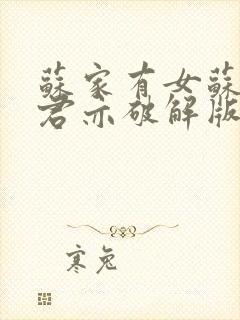 蘇家有女蘇
君亦破解版
寒兔